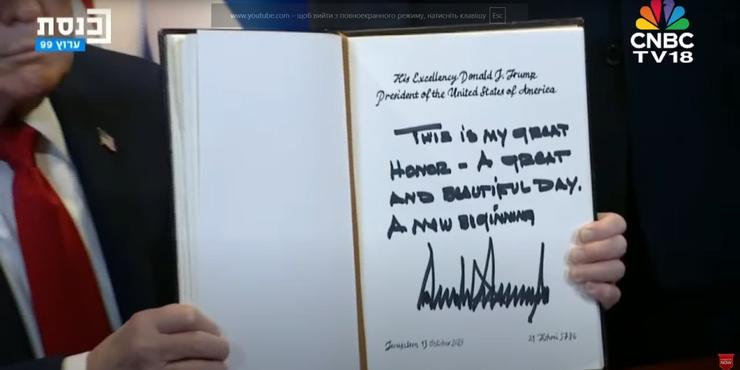 www.youtube.com – щоб вийти з повноекранного режиму, натисніть клавішу Esc
כנסת
ערוץ 99
CNBC
TV18
His Excellency Donald J. Trump
President of the United States of America
THIS IS MY GREAT
HONOR - A GREAT
AND BEAUTIFUL DAY.
A NEW BIGINNING
Jerusalem 13 October 2025
21 Tishrei 5786
NOW